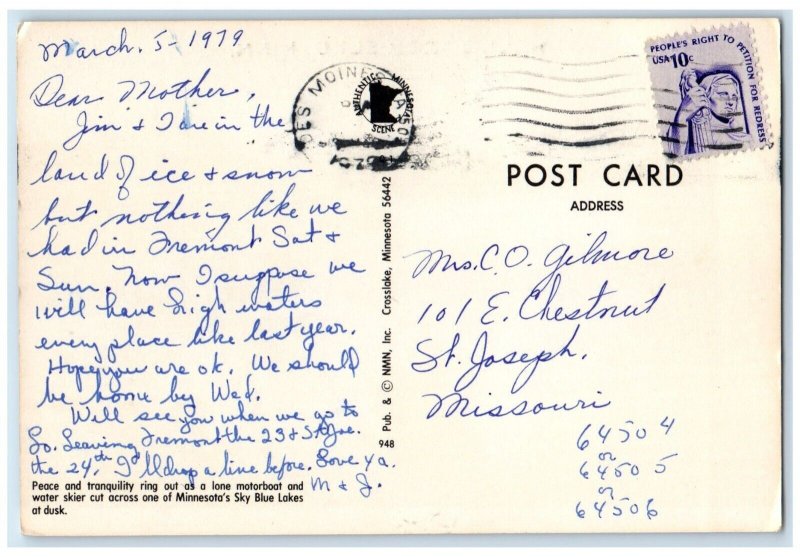 March. 5- 1979
Dear Mother,
Jim & I are in the
land of ice & snow
but nothing like we
had in Fremont Sat &
Sun. Now I suppose we
will have high waters
every place like last year.
Hope you are ok. We should
be home by Wed.
Will see you when we go to
So. Leaving Fremont the 23 & St. Joe.
the 24th. I'll drop a line before. Love ya.
M & J.
Peace and tranquility ring out as a lone motorboat and
water skier cut across one of Minnesota's Sky Blue Lakes
at dusk.
948 Pub. & © NMN, Inc. Crosslake, Minnesota 56442
DES MOINES
AUTHENTIC MINNESOTA
SCENE
PEOPLE'S RIGHT TO PETITION FOR REDRESS
USA 10c
POST CARD
ADDRESS
Mrs. C. O. Gilmore
101 E. Chestnut
St. Joseph,
Missouri
64504
or
64505
or
64506